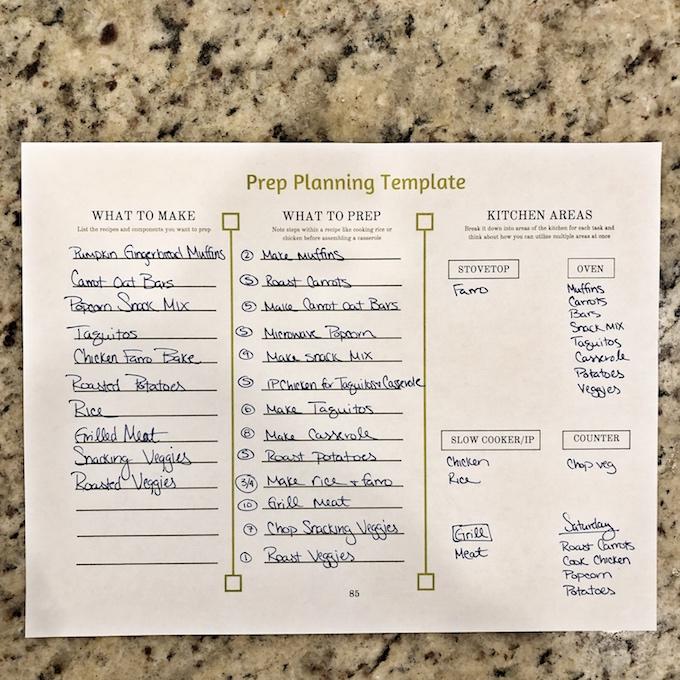 Prep Planning Template
WHAT TO MAKE
List the recipes and components you want to prep
Pumpkin Gingerbread Muffins
Carrot Oat Bars
Popcorn Snack Mix
Taquitos
Chicken Farro Bake
Roasted Potatoes
Rice
Grilled Meat
Snacking Veggies
Roasted Veggies
WHAT TO PREP
Note steps within a recipe like cooking rice or
chicken before assembling a casserole
2 Make Muffins
S Roast Carrots
5 Make Carrot Oat Bars
S Microwave Popcorn
4 Make Snack Mix
S IP Chicken for Taquitos + Casserole
6 Make Taquitos
8 Make Casserole
S Roast Potatoes
3/4 Make rice + farro
10 Grill Meat
7 Chop Snacking Veggies
1 Roast Veggies
85
KITCHEN AREAS
Break it down into areas of the kitchen for each task and
think about how you can utilize multiple areas at once
STOVETOP
Farro
OVEN
Muffins
Carrots
Bars
Snack Mix
Taquitos
Casserole
Potatoes
Veggies
SLOW COOKER/IP
Chicken
Rice
COUNTER
Chop veg
Grill
Meat
Saturday
Roast Carrots
Cook Chicken
Popcorn
Potatoes